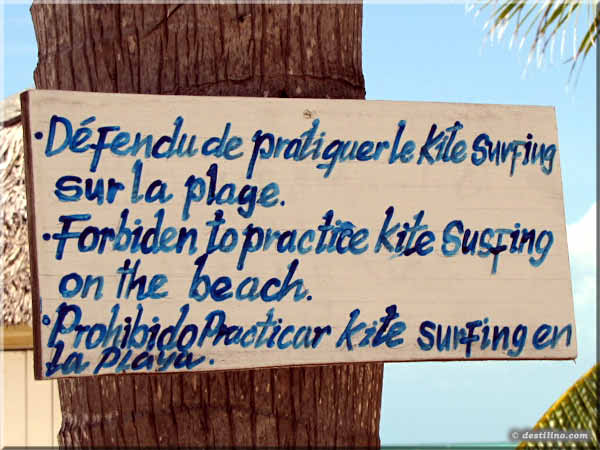 · Défendu de pratiquer le Kite Surfing
sur la plage.
· Forbiden to practice kite Susfing
on the beach.
· Prohibido Practicar kite surfing en
la Playa.
© destilino.com